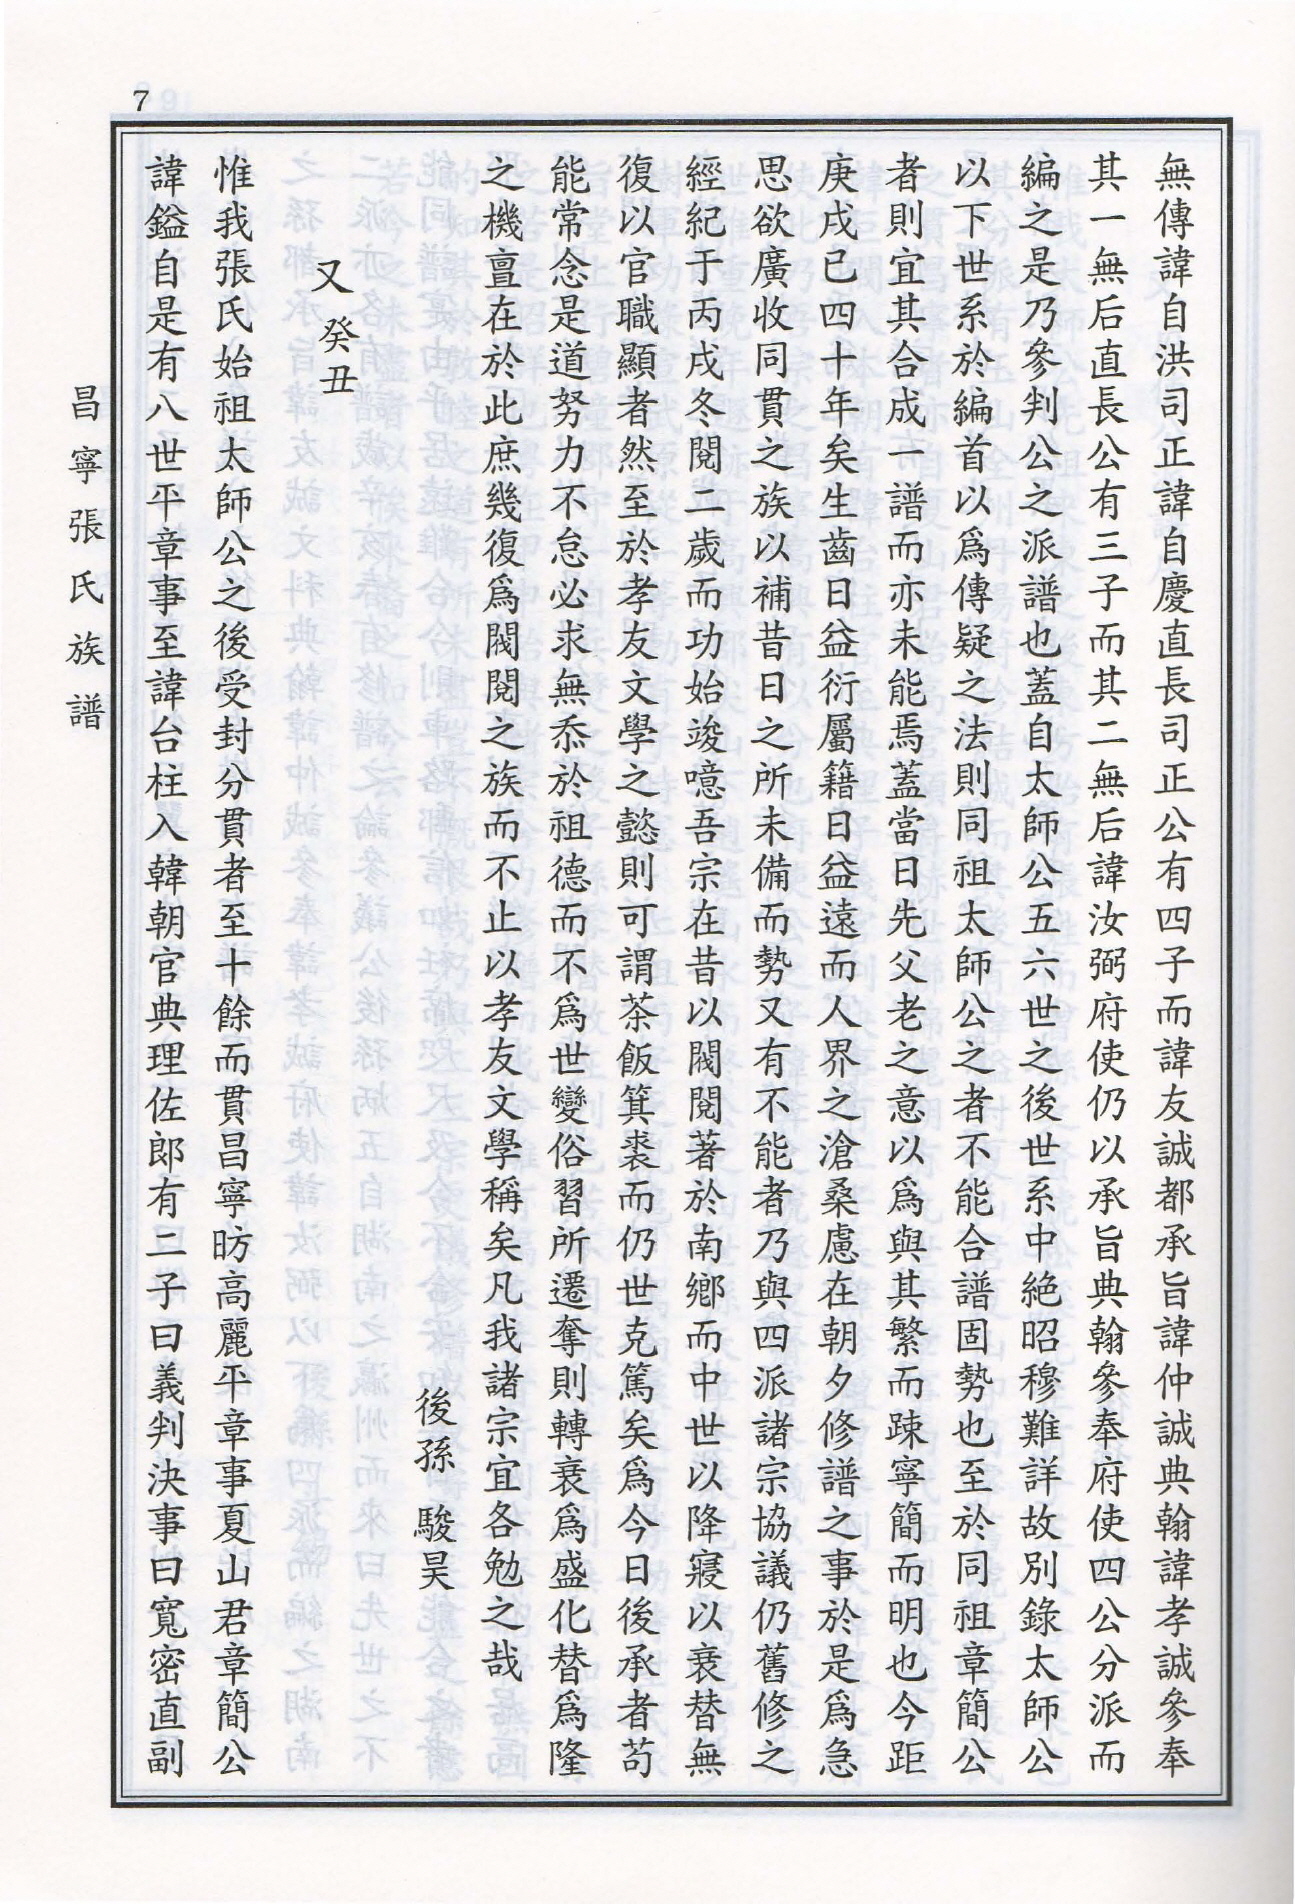 7
無傳諱自洪司正諱自慶直長司正公有四子而諱友誠都承旨諱仲誠典翰諱孝誠參奉
其一無后直長公有三子而其二無后諱汝弼府使仍以承旨典翰參奉府使四公分派而
編之是乃參判公之派譜也蓋自太師公五六世之後世系中絶昭穆難詳故別錄太師公
以下世系於編首以爲傳疑之法則同祖太師公之者不能合譜固勢也至於同祖章簡公
者則宜其合成一譜而亦未能焉蓋當日先父老之意以爲與其繁而踈寧簡而明也今距
庚戌已四十年矣生齒日益衍屬籍日益遠而人界之滄桑慮在朝夕修譜之事於是爲急
思欲廣收同貫之族以補昔日之所未備而勢又有不能者乃與四派諸宗協議仍舊修之
經紀于丙戌冬閱二歲而功始竣噫吾宗在昔以閥閱著於南鄕而中世以降寢以衰替無
復以官職顯者然至於孝友文學之懿則可謂茶飯箕裘而仍世克篤矣爲今日後承者苟
能常念是道努力不怠必求無忝於祖德而不爲世變俗習所遷奪則轉衰爲盛化替爲隆
之機亶在於此庶幾復爲閥閱之族而不止以孝友文學稱矣凡我諸宗宜各勉之哉
後孫 駿昊
又 癸丑
惟我張氏始祖太師公之後受封分貫者至十餘而貫昌寧昉高麗平章事夏山君章簡公
諱鎰自是有八世平章事至諱台柱入韓朝官典理佐郎有二子曰義判決事曰寬密直副
昌寧張氏族譜